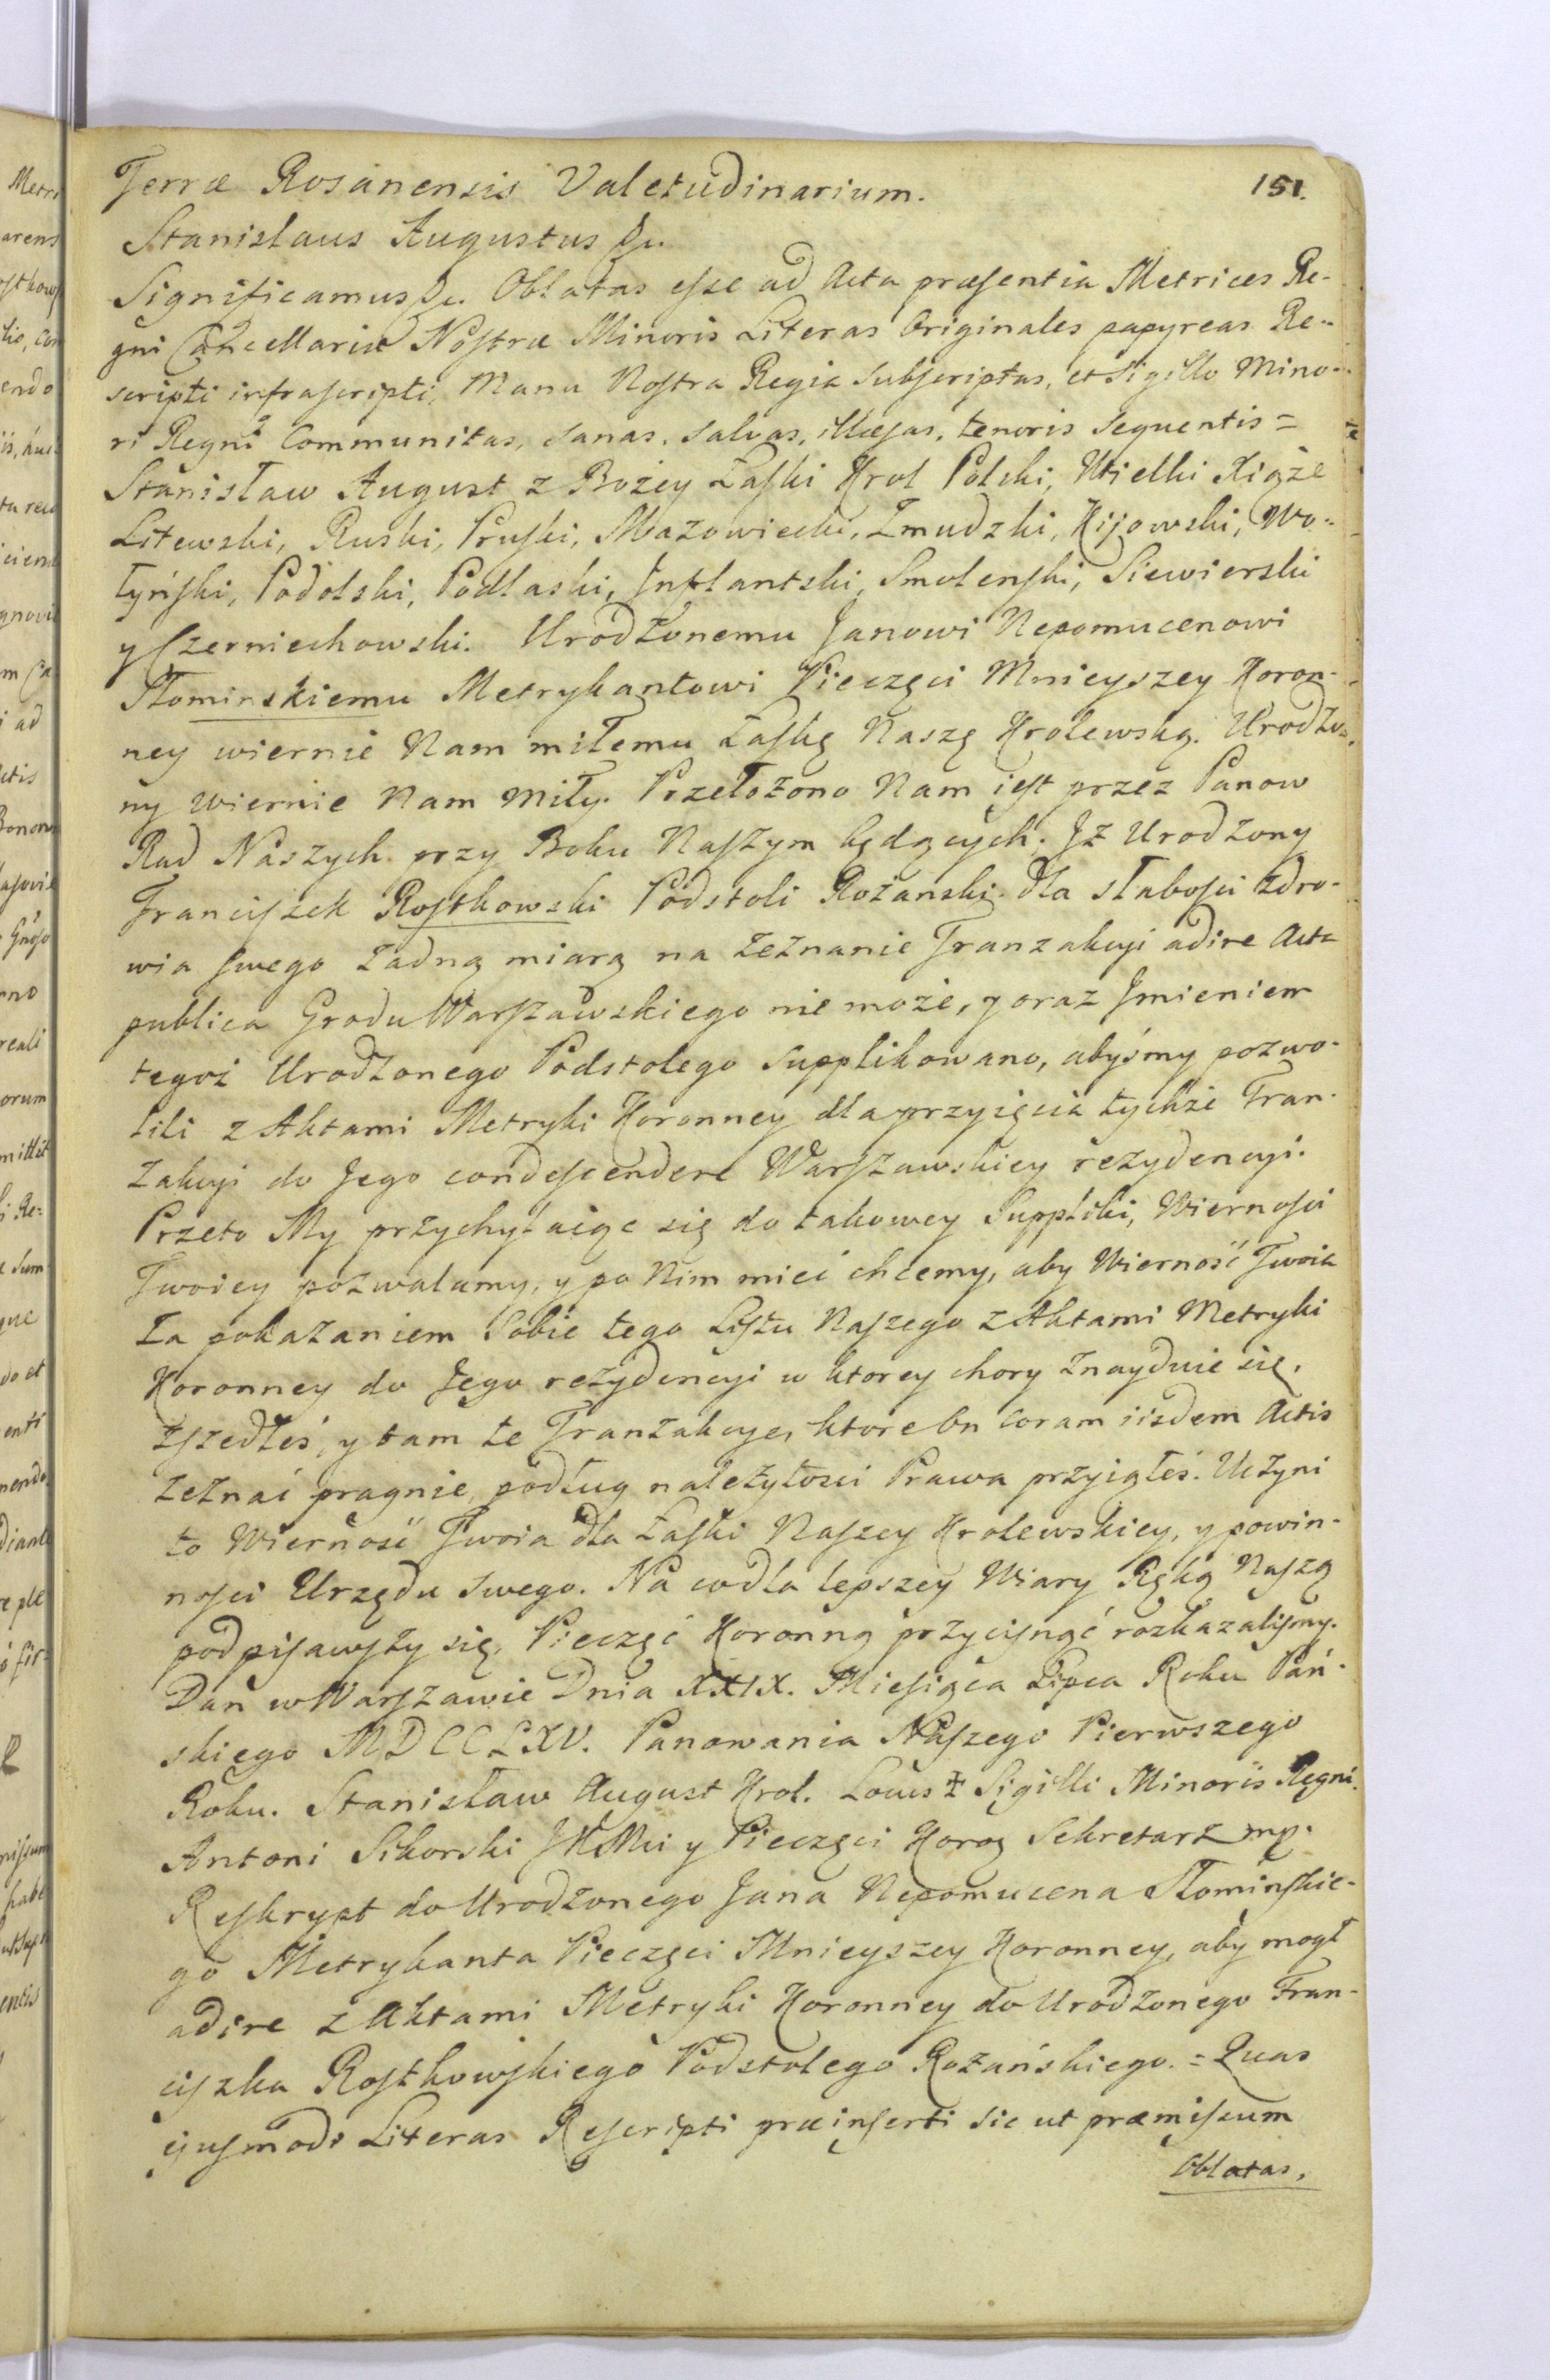 Terræ Rosanensis Valetudinarium.
151.
Stanislaus Augustus &c.
Significamus &c. Oblatas eſse ad Acta præſentia Metrices Re-
gni Cancellariæ Noſtræ Minoris Literas Originales papyreas Re-
scripti infraſcripti, Manu Noſtra Regia Subſcriptas, et Sigillo Mino-
ri Regni Communitas, sanas, salvas, illæſas, tenoris sequentis =
Stanisław August z Bożey Łaſki Krol Polski, Wielki Xiąże
Litewski, Ruski, Pruſki, Mazowiecki, Zmudzki, Kijowski, Wo-
łyńſki, Podolski, Podlaski, Inflantski, Smolenſki, Siewierski
y Czerniechowski. Urodzonemu Janowi Nepomucenowi
Słominskiemu Metrykantowi Pieczęci Mnieyszey Koron-
ney wiernie Nam miłemu Łaſkę Naszę Krolewską. Urodzo-
ny wiernie Nam miły. Przełożono Nam ieſt przez Panow
Rad Naszych przy Boku Naſzym będących. Jż Urodzony
Franciſzek Roſtkowski Podstoli Rożanski dla słaboſci zdro-
wia ſwego żadną miarą na zeznanie Tranzakcyi adire Acta
publica Grodu Warſzawskiego nie może, y oraz Jmieniem
tegoż Urodzonego Podstolego Supplikowano, abyśmy pozwo-
lili z Aktami Metryki Koronney dla przyięcia tychże Tran-
zakcyi do Jego condeſcendere Warſzawskiey rezydencyi.
Przeto My przychylaiąc się do takowey Suppliki, Wiernoſci
Twoiey pozwalamy, y po Nim mieć chcemy, aby Wierność Twoia
za pokazaniem Sobie tego Liſtu Naſzego z Aktami Metryki
Koronney do Jego rezydencyi w ktorey chory znayduie się,
zſzedłeś, y tam te Tranzakcye, ktore on coram iisdem Actis
zeznać pragnie, podług należytości Prawa przyiąłeś. Uczyni
to Wierność Twoia dla Łaſki Naſzey Krolewskiey, y powin-
noſci Urzędu swego. Na co dla lepszey Wiary Ręką Naſzą
podpiſawſzy się, Pieczęć Koronną przyciſnąć rozkazaliſmy.
Dan w Warſzawie Dnia XXIX. Mieſiąca Lipca Roku Pań-
skiego MDCCLXV. Panowania Naſzego Pierwszego
Roku. Stanisław August Krol. Locus ‡ Sigilli Minoris Regni.
Antoni Sikorski JKMci y Pieczęci Koroą Sekretarz mp.
Reſkrypt do Urodzonego Jana Nepomucena Słominſkie-
go Metrykanta Pieczęci Mnieyszey Koronney, aby mogł
adire z Aktami Metryki Koronney do Urodzonego Fran-
ciſzka Roſtkowſkiego Podstolego Rożańskiego. = Quas
ejuſmodi Literas Reſcripti præinſerti sic ut præmiſsum
Oblatas,